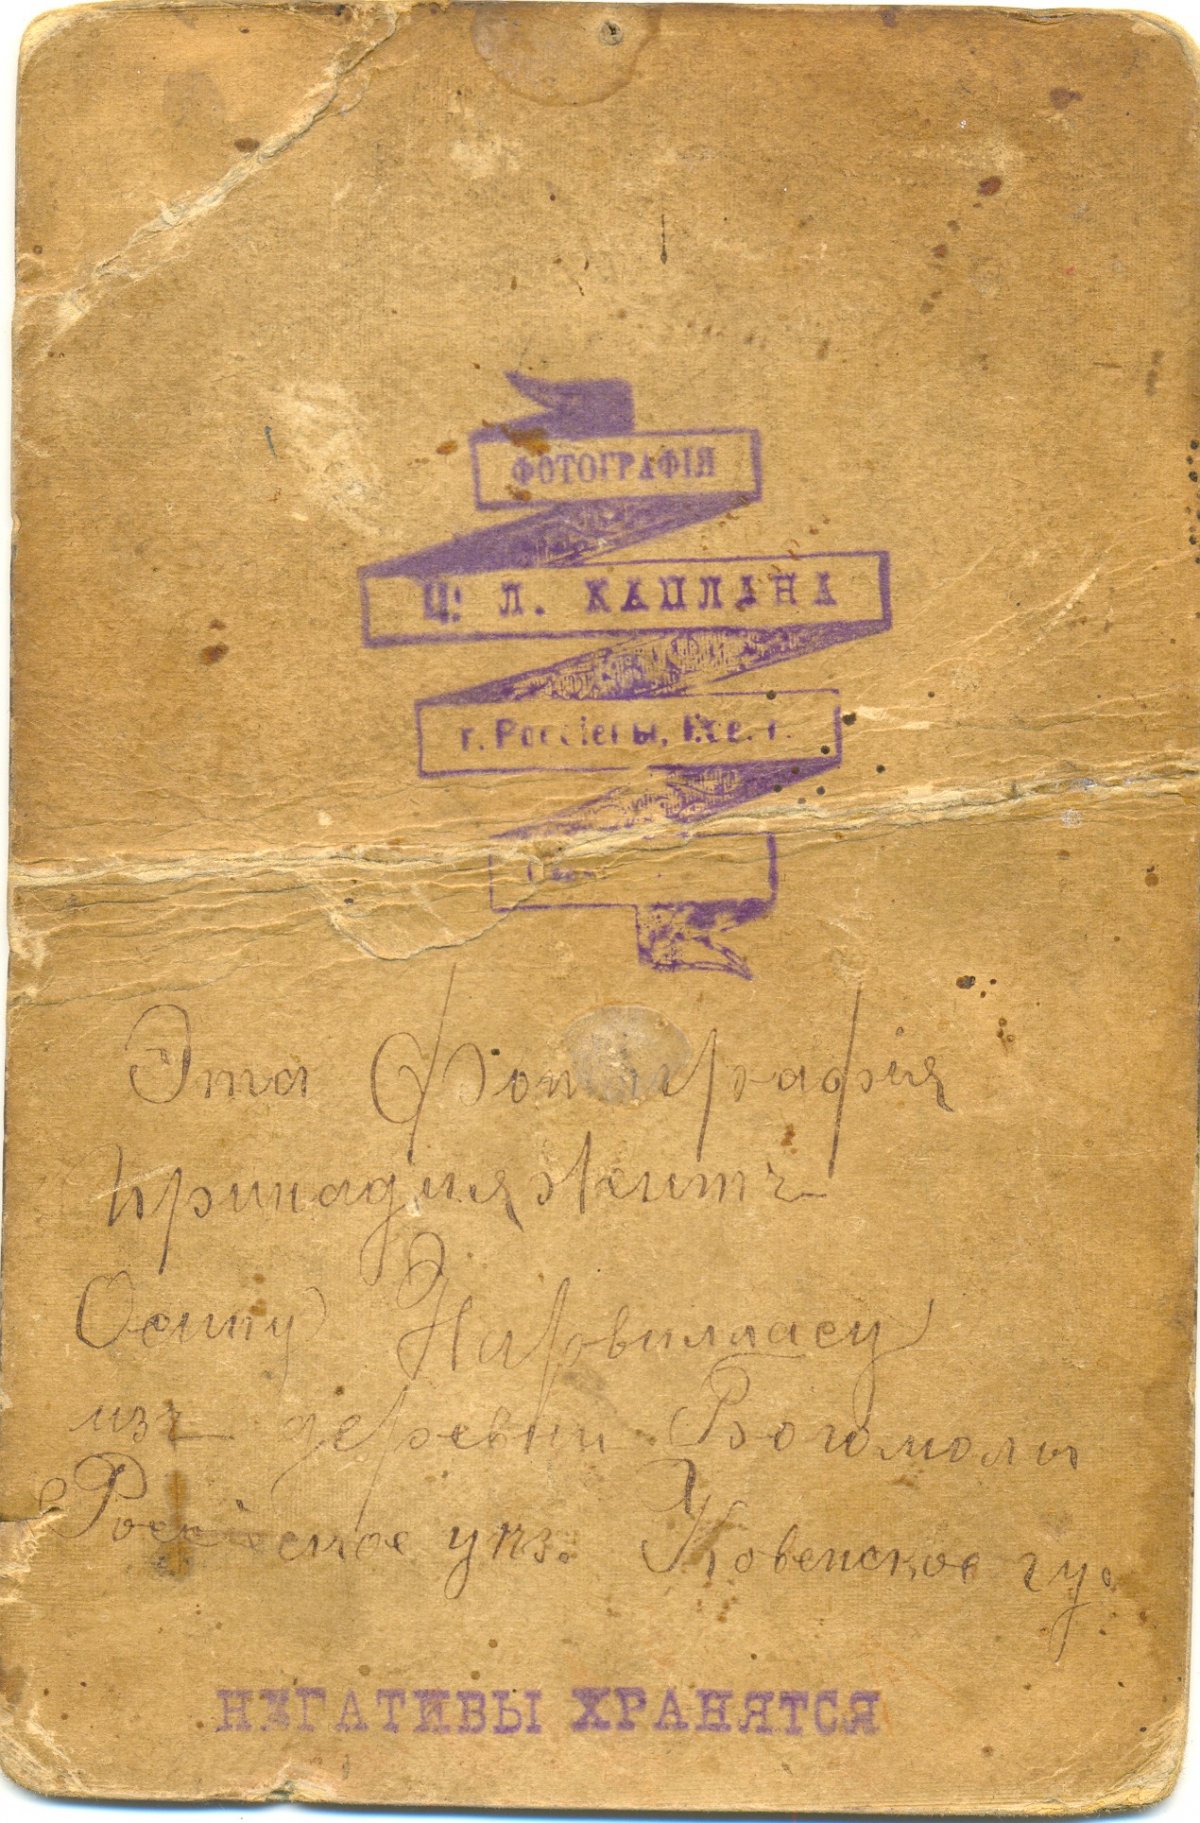 ФОТОГРАФІЯ
Ц. Л. КАПЛАНА
г. Россіены,
Эта Фотографія
принадляжитъ
Осипу Нарвилласу
изъ деревни Богомолы
Россіеское уѣз. Ковенское гу.
НЕГАТИВЫ ХРАНЯТСЯ